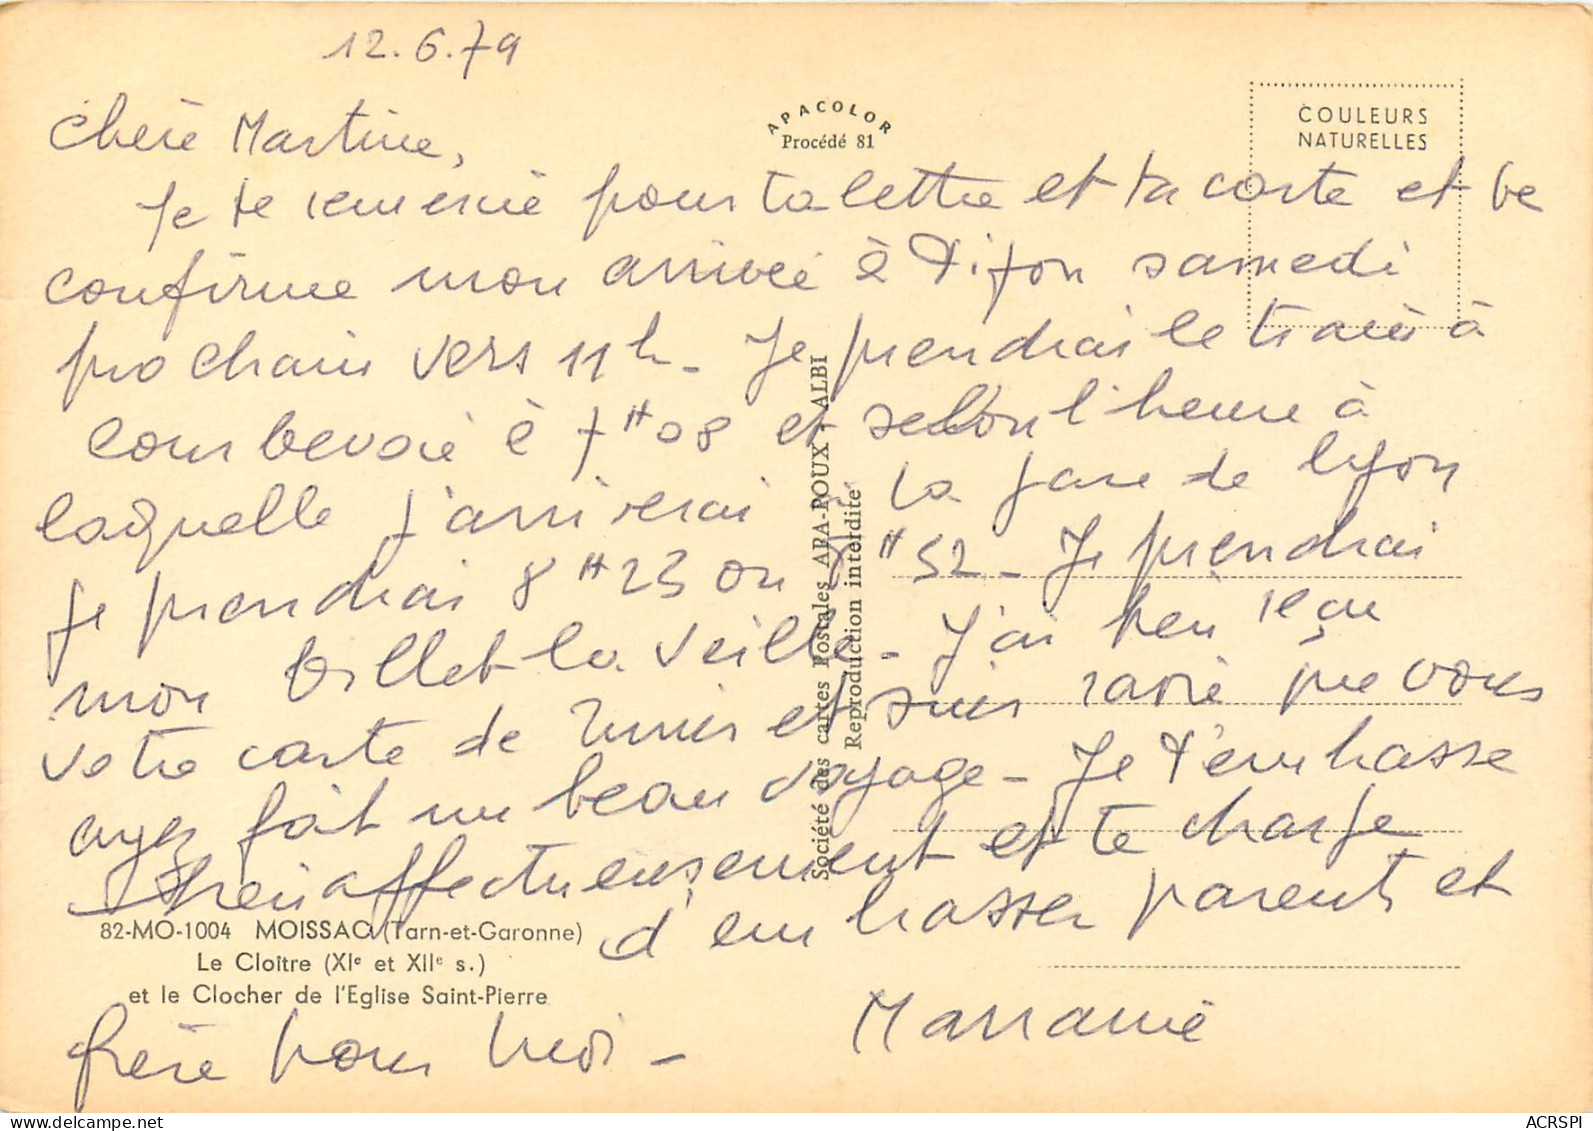 12.6.79
Chère Martine,
APACOLOR
Procédé 81
COULEURS
NATURELLES
Je te remercie pour ta lettre et ta carte et te
confirme mon arrivée à Dijon samedi
prochain vers 11h - Je prendrai le train à
Courbevoie à 7H08 et selon l'heure à
laquelle j'arriverai à la gare de Lyon
je prendrai 8H23 ou 8H52 - Je prendrai
mon billet la veille - J'ai bien reçu
votre carte de Tunis et suis ravie que vous
ayez fait un beau voyage - Je t'embrasse
bien affectueusement et te charge
d'embrasser parents et
frère pour moi -
Marraine
Société des cartes Postales APA-POUX - ALBI
Reproduction interdite
82-MO-1004 MOISSAC (Tarn-et-Garonne)
Le Cloître (XIe et XIIe s.)
et le Clocher de l'Eglise Saint-Pierre
www.delcampe.net
ACRSPI